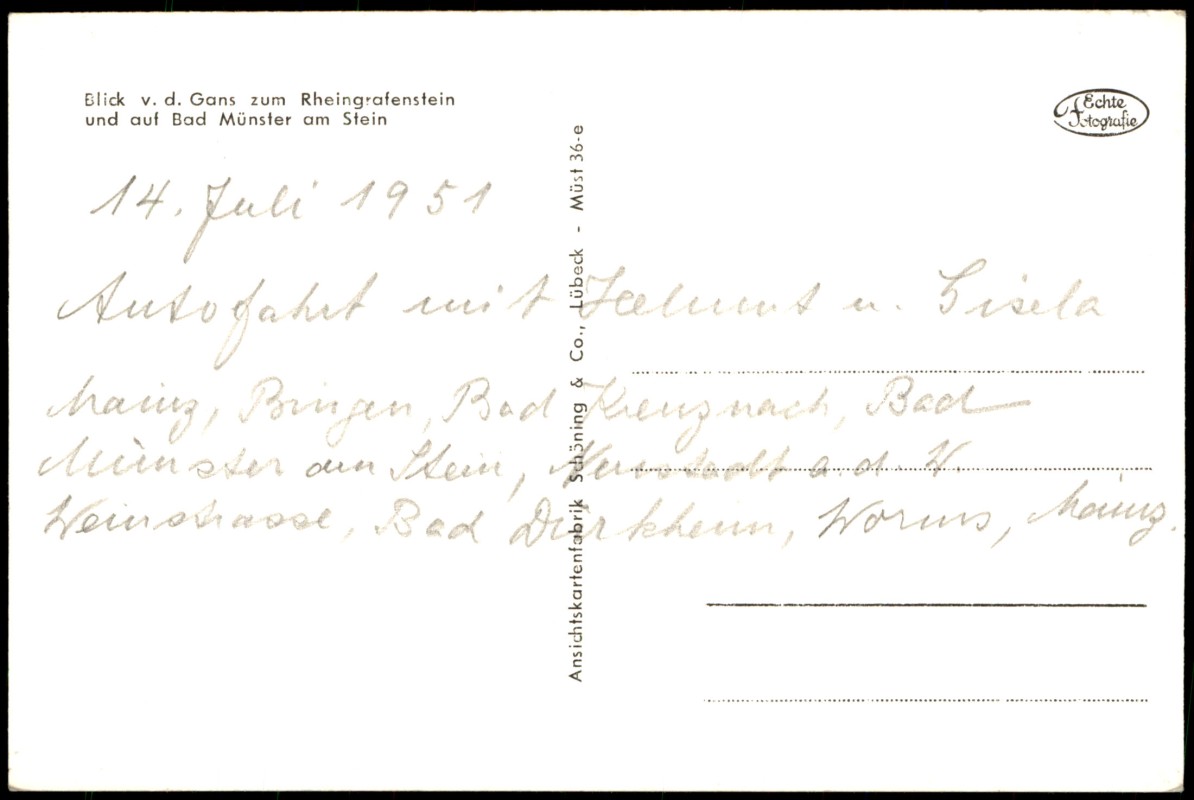 Blick v. d. Gans zum Rheingrafenstein
und auf Bad Münster am Stein
Echte
Fotografie
14. Juli 1951
Autofahrt mit Helmut u. Gisela
Mainz, Bingen, Bad Kreuznach, Bad
Münster am Stein, Neustadt a. d. W.
Weinstrasse, Bad Dürkheim, Worms, Mainz.
Ansichtskartenfabrik Schöning & Co., Lübeck - Müst 36-e